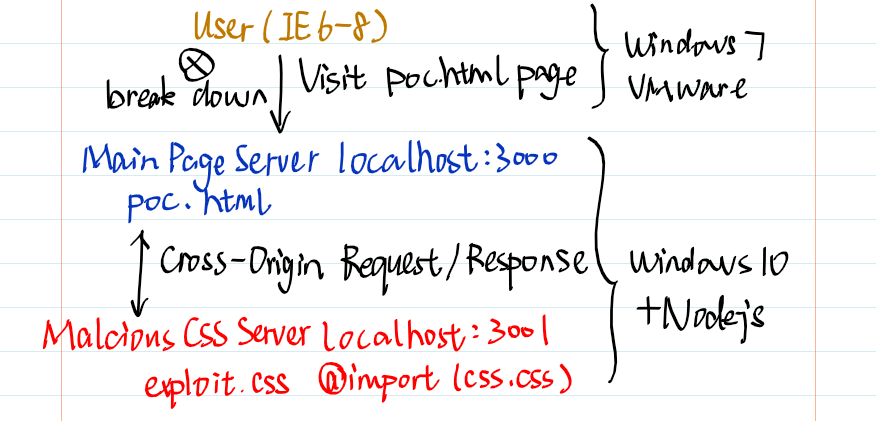 User (IE 6-8)
break down
Visit poc.html page
Windows 7
VMware
Main Page Server localhost:3000
poc.html
Cross-Origin Request/Response
Windows 10
+Nodejs
Malcious CSS Server localhost:3001
exploit.css @import (css.css)